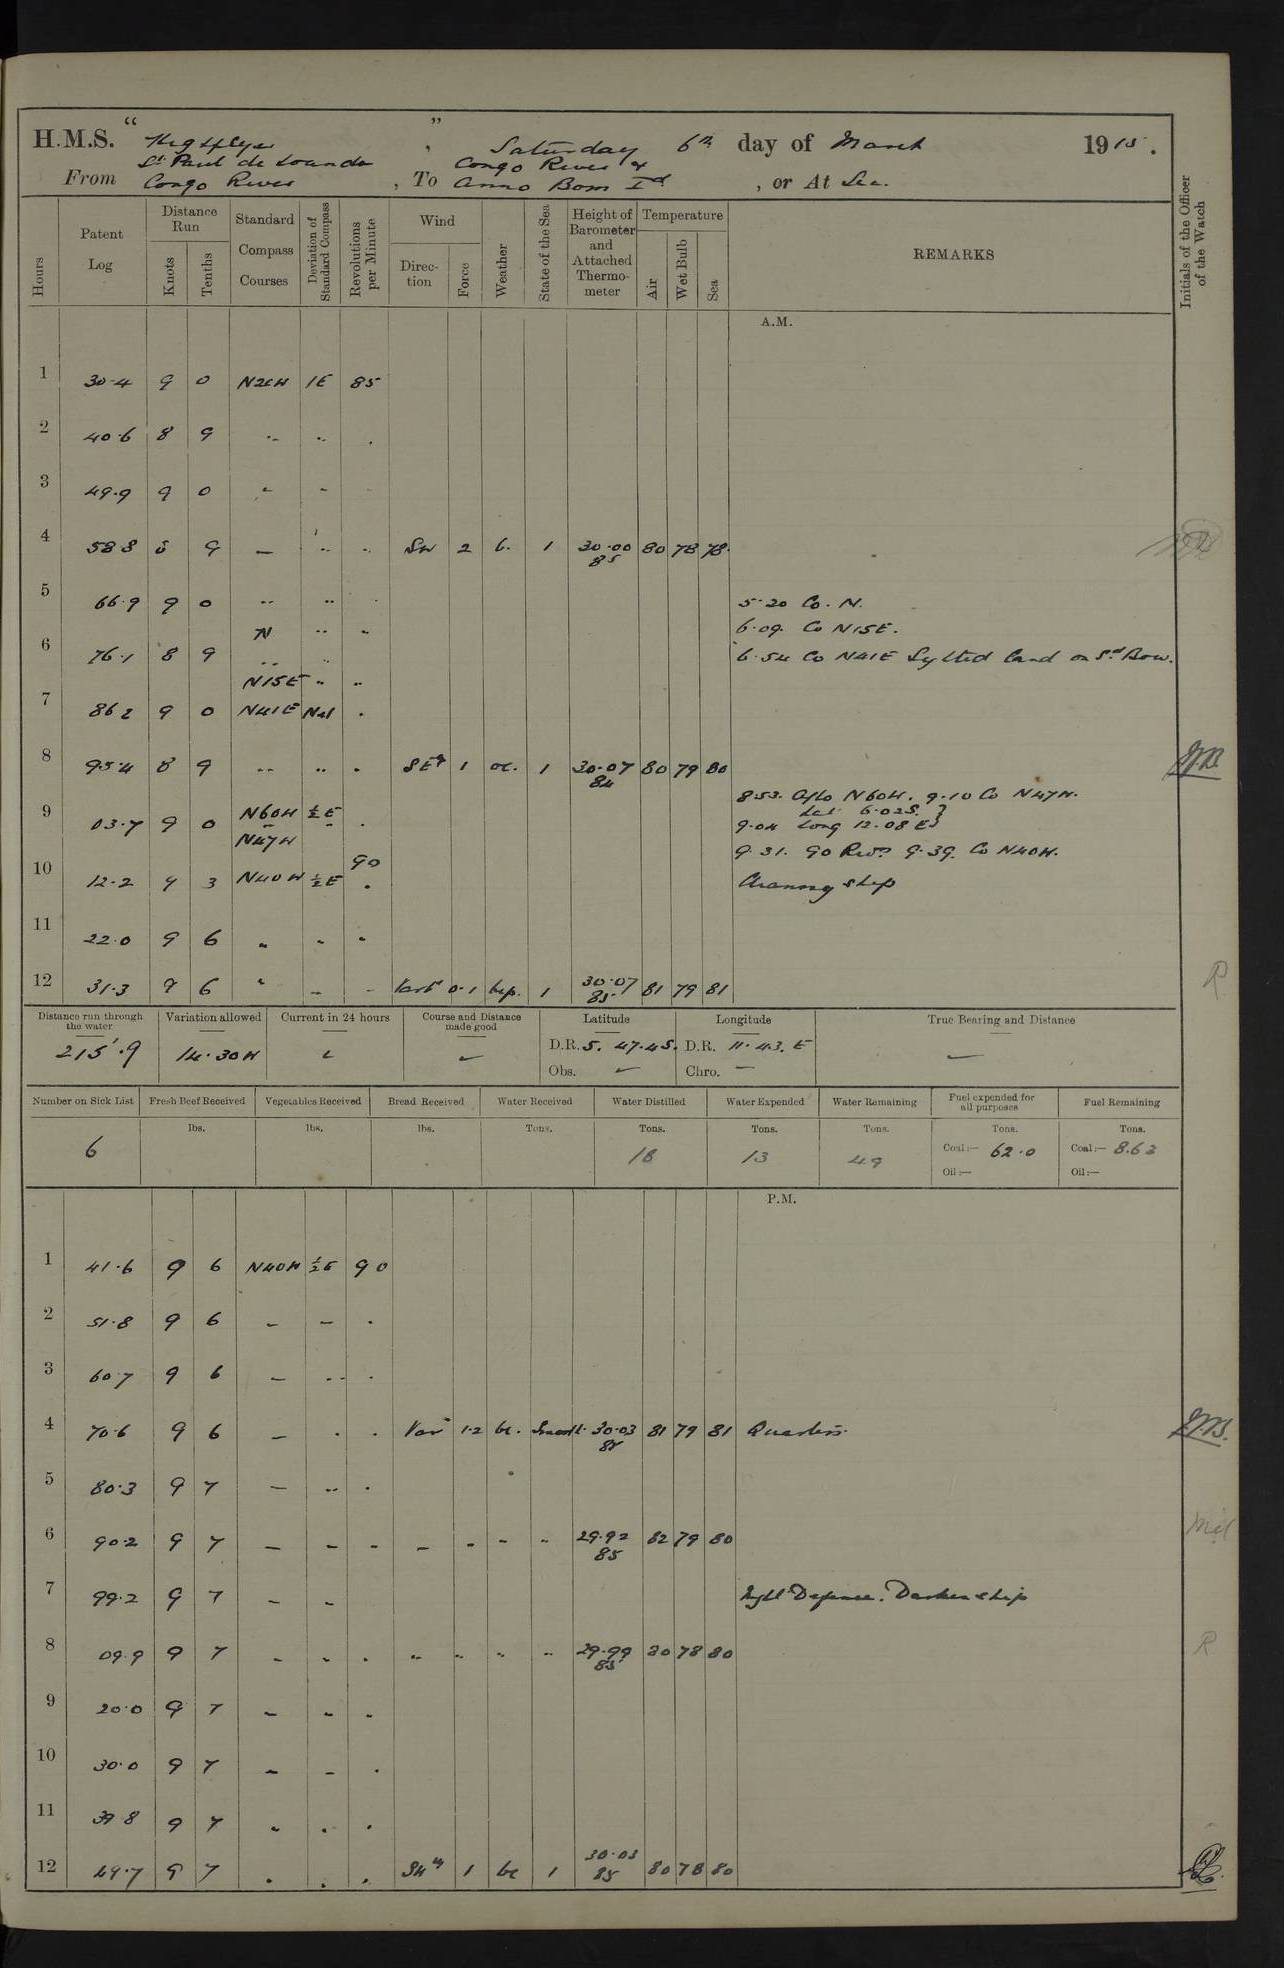 H.M.S. " Highflyer ", Saturday 6th day of March 1915.
St Paul de Loanda Congo River &
From Congo River, To Anno Bom Id, or At Sea.
Hours Patent Log Distance Run Knots Tenths Standard Compass Courses Deviation of Standard Compass Revolutions per Minute Wind Direction Force Weather State of the Sea Height of Barometer and Attached Thermometer Temperature Air Wet Bulb Sea REMARKS Initials of the Officer of the Watch
A.M.
1 30.4 9 0 1E 85
2 40.6 8 9 .. .. .
3 49.9 9 0 " "
4 58 8 8 9 — .. .. SW 2 b. 1 30.00 85 80 78 78
5 66.9 9 0 .. .. . 5.20 Co. N.
N .. .. 6.09. Co N15E.
6 76.1 8 9 .. .. 6.54 Co N41E Sighted land on Sd Bow.
N15E .. ..
7 86 2 9 0 N41E Nil .
8 95.4 8 9 .. .. . SEly 1 oc. 1 30.07 84 80 79 80
8.53. a/co N60W. 9.10 Co N47W.
9 03.7 9 0 N60W ½E . 9.04 Lat 6.02S. Long 12.08E
N47W
9.31. 90 Revs. 9.39. Co N40W.
10 12.2 9 3 N40W ½E 90 Cleaning ship
11 22.0 9 6 " " "
12 31.3 9 6 " — — 0.1 1 30.07 85 81 79 81
Distance run through the water Variation allowed Current in 24 hours Course and Distance made good Latitude Longitude True Bearing and Distance
215'.9 14.30W D.R. 5. 47.4S. D.R. 11.43.E
Obs. Chro. —
Number on Sick List Fresh Beef Received Vegetables Received Bread Received Water Received Water Distilled Water Expended Water Remaining Fuel expended for all purposes Fuel Remaining
lbs. lbs. lbs. Tons. Tons. Tons. Tons. Tons. Tons.
6 18 13 49 Coal:— 62.0 Coal:— 863
Oil:— Oil:—
P.M.
1 41.6 9 6 N40W ½E 90
2 51.8 9 6 — — .
3 60.7 9 6 — .. .
4 70.6 9 6 — . . Var 1.2 bc. Smooth 30.03 85 81 79 81 Quarters.
5 80.3 9 7 — .. .
6 90.2 9 7 — — — — - - .. 29.92 85 82 79 80
7 99.2 9 7 — — Night Defence. Darken ship
8 09.9 9 7 — .. . .. .. .. .. 29.99 85 80 78 80 R
9 20.0 9 7 — .. ..
10 30.0 9 7 — — .
11 39.8 9 7 " . .
12 49.7 9 7 . . . SWly 1 bc 1 30.03 85 80 78 80